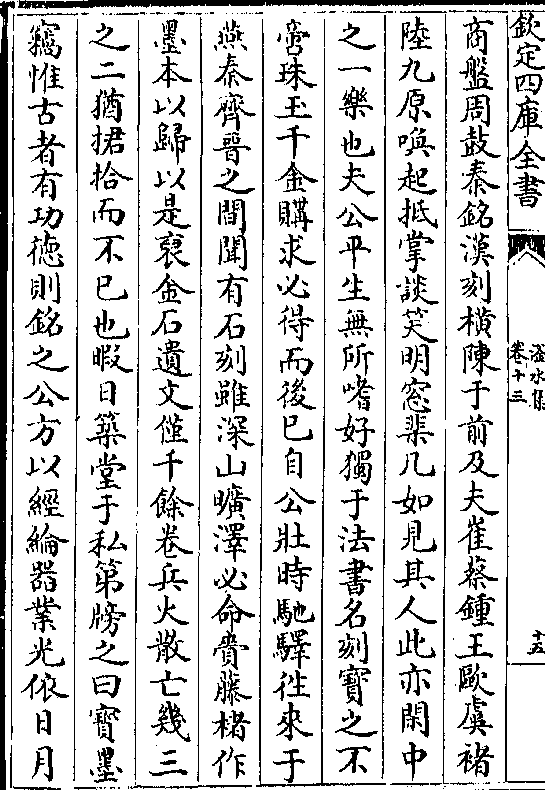 欽定四庫全書
滏水集
卷十三
十五
商盤周鼓秦銘漢刻横陳于前及夫崔蔡鍾王歐虞褚
陸九原喚起抵掌談笑明窓棐几如見其人此亦閑中
之一樂也夫公平生無所嗜好獨于法書名刻寳之不
啻珠玉千金購求必得而後已自公壯時馳驛徃來于
燕秦齊晉之間聞有石刻雖深山曠澤必命賫藤楮作
墨本以歸以是裒金石遺文僅千餘卷兵火散亡幾三
之二猶捃拾而不已也暇日築堂于私第牓之曰寳墨
竊惟古者有功徳則銘之公方以經綸器業光依日月